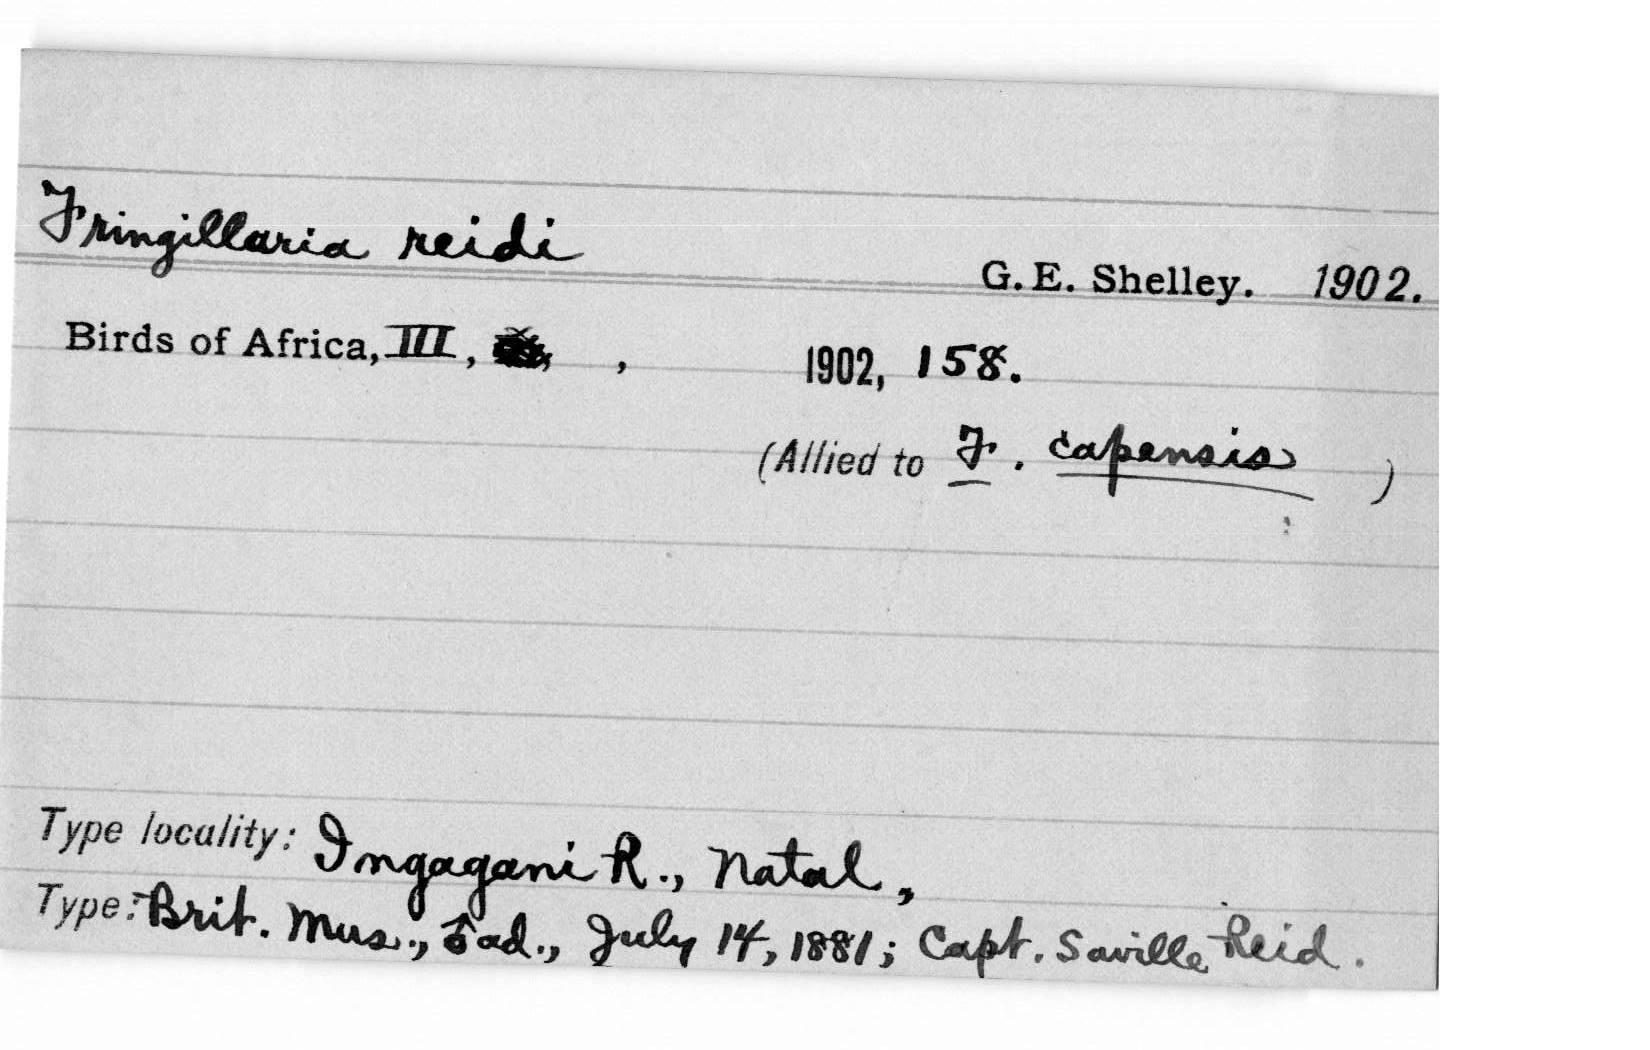 Fringillaria reidi
G. E. Shelley. 1902.
Birds of Africa, III, , 1902, 158.
(Allied to F. capensis )
Type locality: Ingagani R., Natal,
Type: Brit. Mus., ♂ ad., July 14, 1881; Capt. Saville Reid.